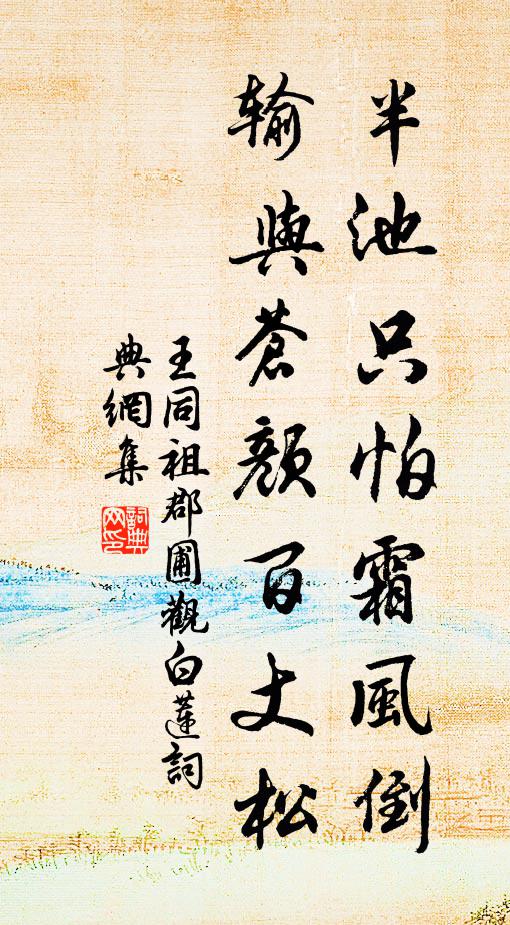 半池只怕霜風倒
輸與蒼顏百丈松
王同祖郡圃觀白蓮詞
典網集
詞典
网印